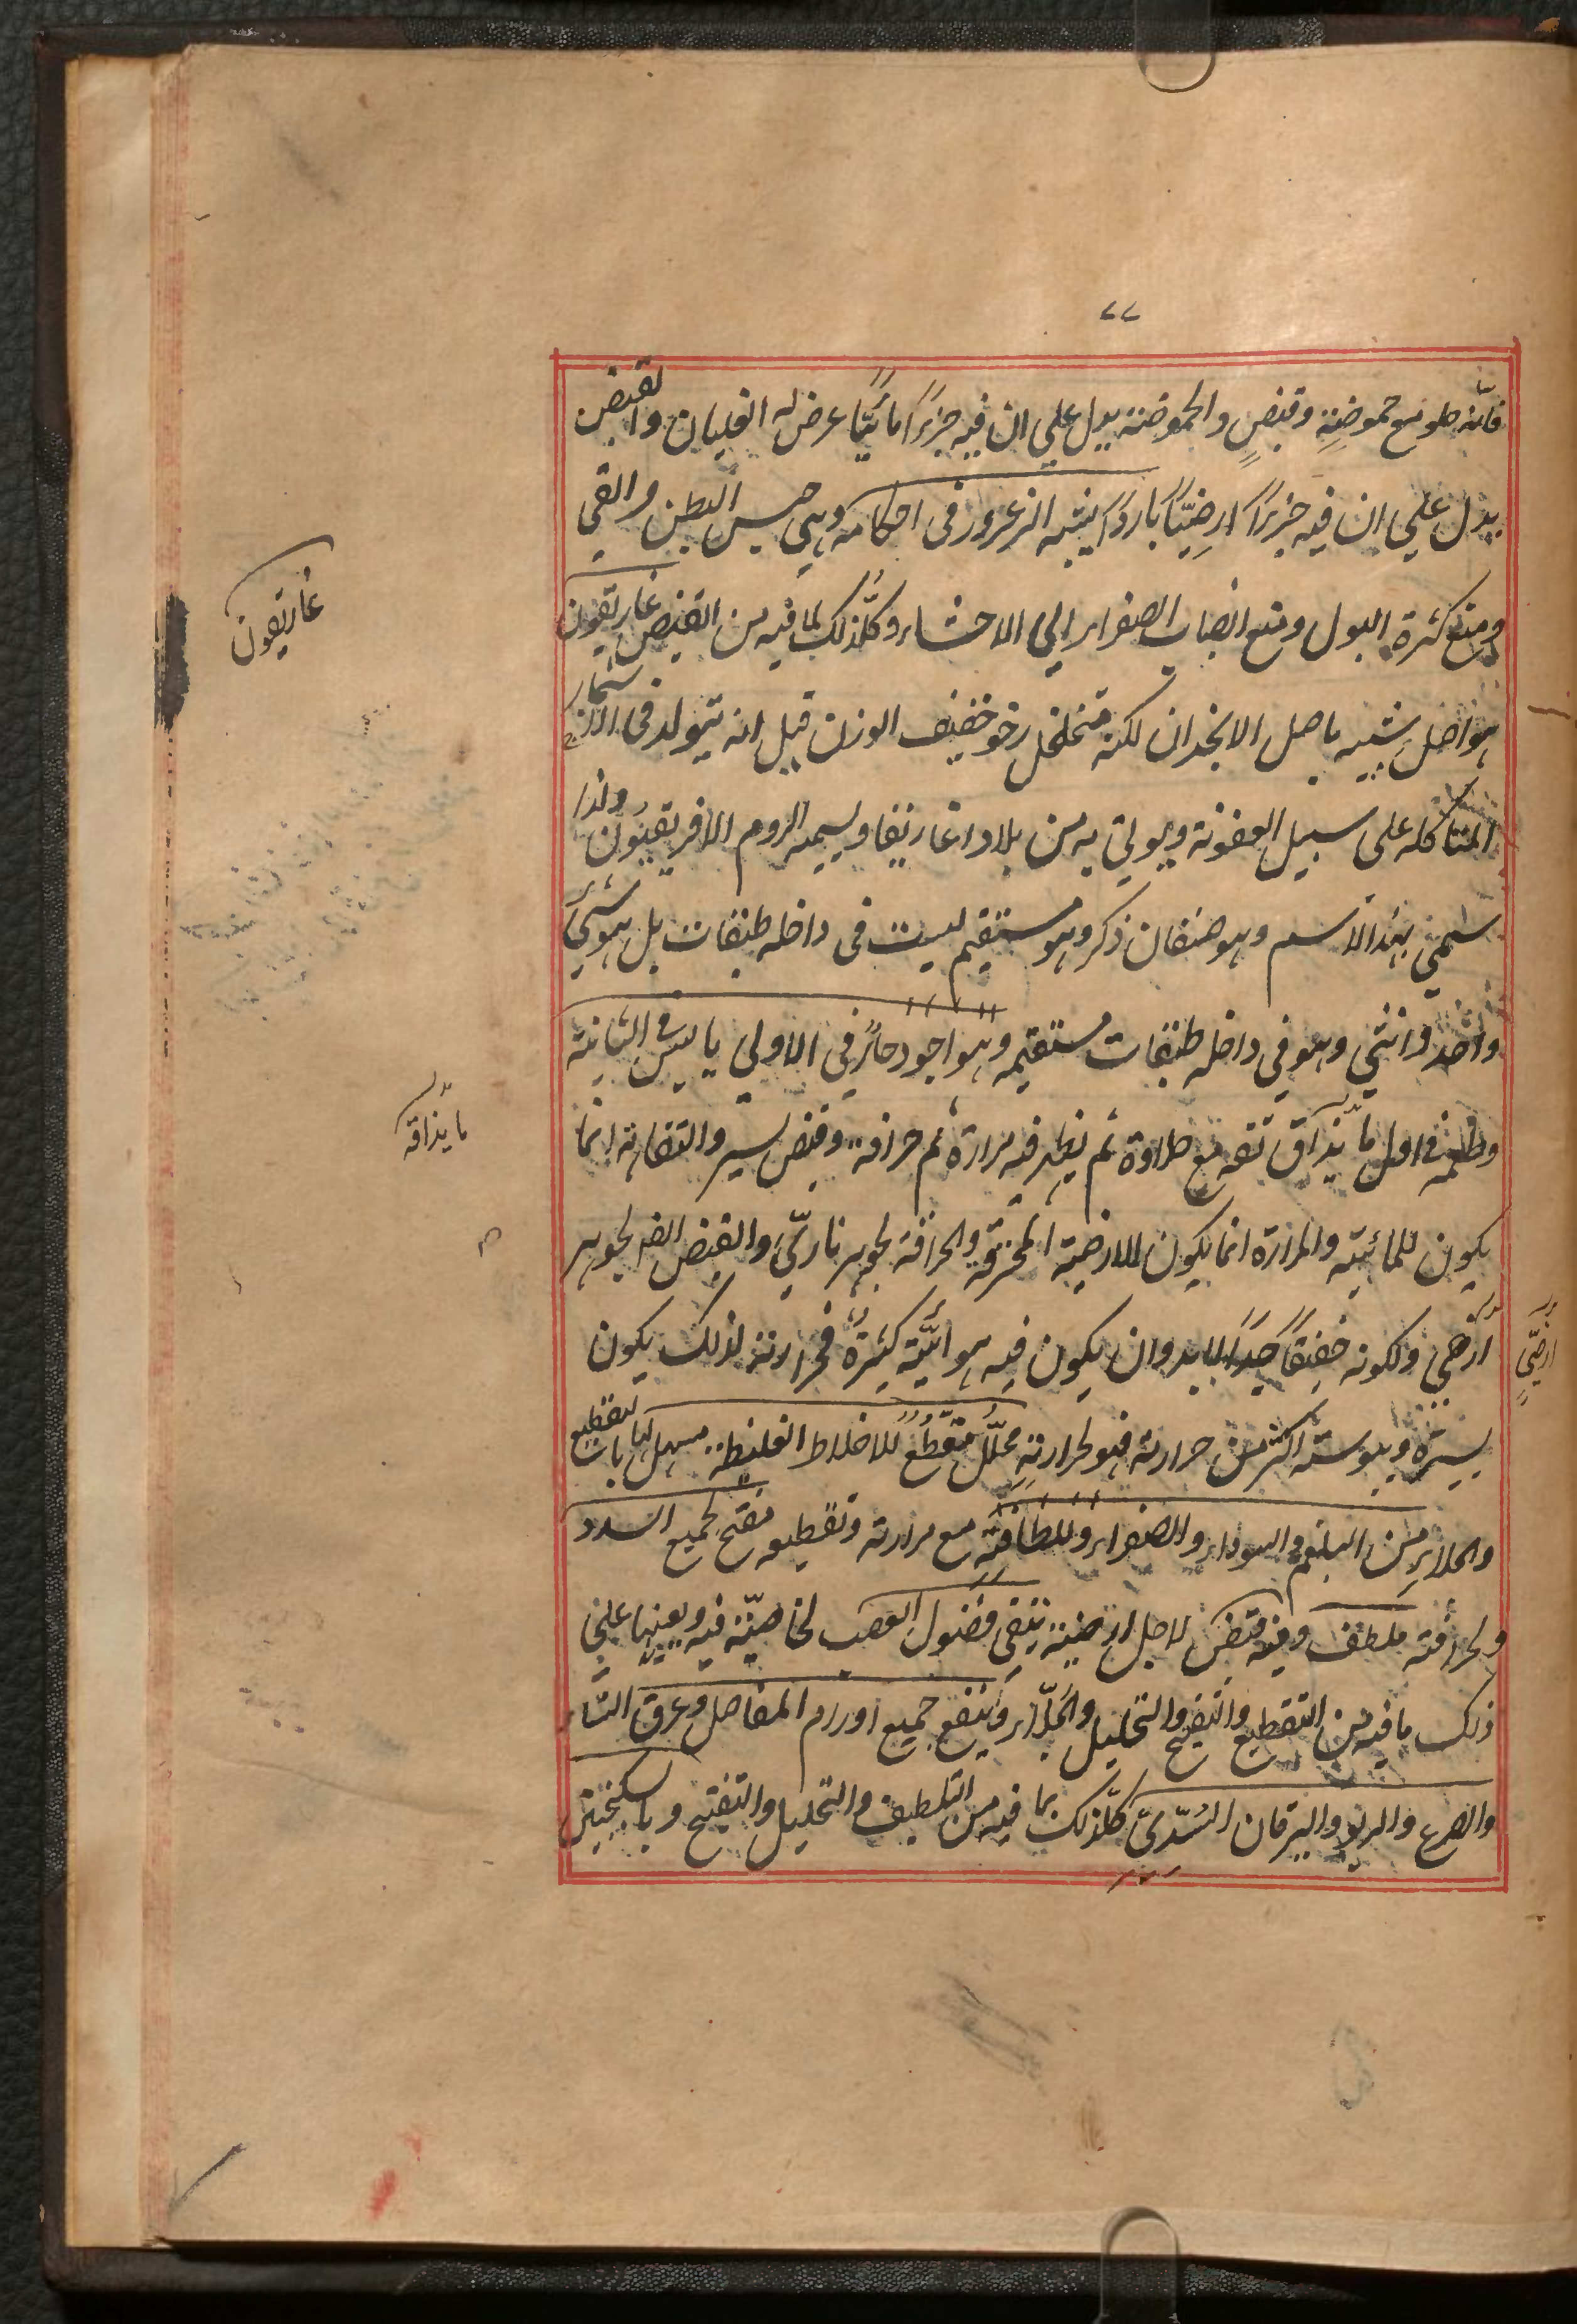 ٧٧
فانّه حلو مع حموضةٍ وقبضٍ والحموضة يدل علي ان فيه جزءًا مائيًّا عرض له الغليان والقبض
يدل علي ان فيه جزءًا ارضيًّا باردًا يشبه الزعرور في احكامه وهي حبس البطن والقي
ومنع كثرة البول ومنع انصباب الصفراء الي الاحشاء وكلّ ذلك لما فيه من القبض غاريقون
هو اصل شبيه باصل الانجدان لكنه متخلخل رخو خفيف الوزن قيل انه يتولد في الاشجار
المتاكله على سبيل العفونة ويوتي به من بلاد اغاريقا ويسميه الروم الافريقيون ولذا
سمي بهذا الاسم وهو صنفان ذكر وهو مستقيم ليست في داخله طبقات بل هو شيء
واحد وانثي وهو في داخله طبقات مستقيمه وهو اجود حارٌ في الاولي يابس في الثانية
وطعمه في اول ما يذاق تفه مع حلاوة ثم يظهر فيه مرارة ثم حرافة وقبض يسير والتفاهة انما
يكون للمائية والمرارة انما يكون للارضية المحترقه والحرافة لجوهر ناريّ والقبض ايضا لجوهر
ارضي ولكونه خفيفًا جدًا لابد وان يكون فيه هوائيّة كثيرةٌ فحرارته لذلك يكون
يسيرة ويبوسته اكثر من حرارته فهو لحرارتهِ محلّلٌ مقطّعٌ للاخلاط الغليظة مسهل لها بالتقطيع
والجلاءِ من البلغم والسوداء والصفراء وللطافتِه مع مرارته وتقطيعه مفتح لجميع السدد
ولحرافته ملطف وفيه قبض لاجل ارضيته ينقي فضول العصب لخاصيّة فيه ويعينها علي
ذلك ما فيه من التقطيع والتفتيح والتحليل والجلاء وينفع جميع اورام المفاصل وعرق النساء
والصرع والربو واليرقان السُدّيّ كلّ ذلك بما فيه من التلطيف والتحليل والتفتيح وبالسكنجبين
غاريقون
ما يذاقه
ارضيّ